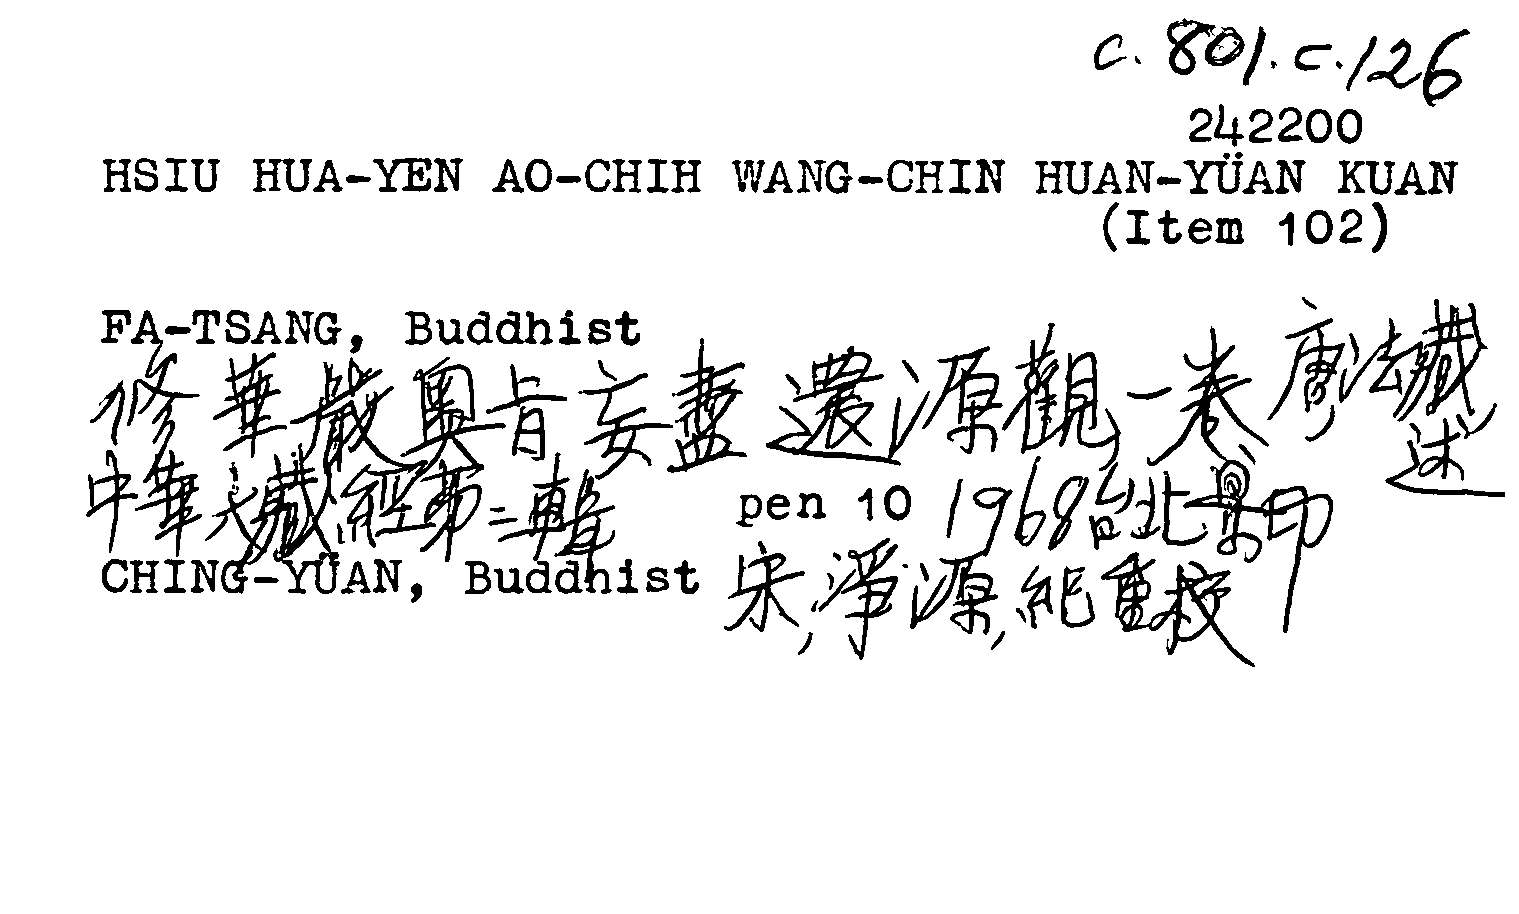 c. 801. c. 126
242200
HSIU HUA-YEN AO-CHIH WANG-CHIN HUAN-YÜAN KUAN
(Item 102)
FA-TSANG, Buddhist
修華嚴奧旨妄盡還源觀一卷 唐,法藏,述
中華大藏經第二輯 pen 10 1968台北景印
CHING-YÜAN, Buddhist 宋,淨源,紀重校